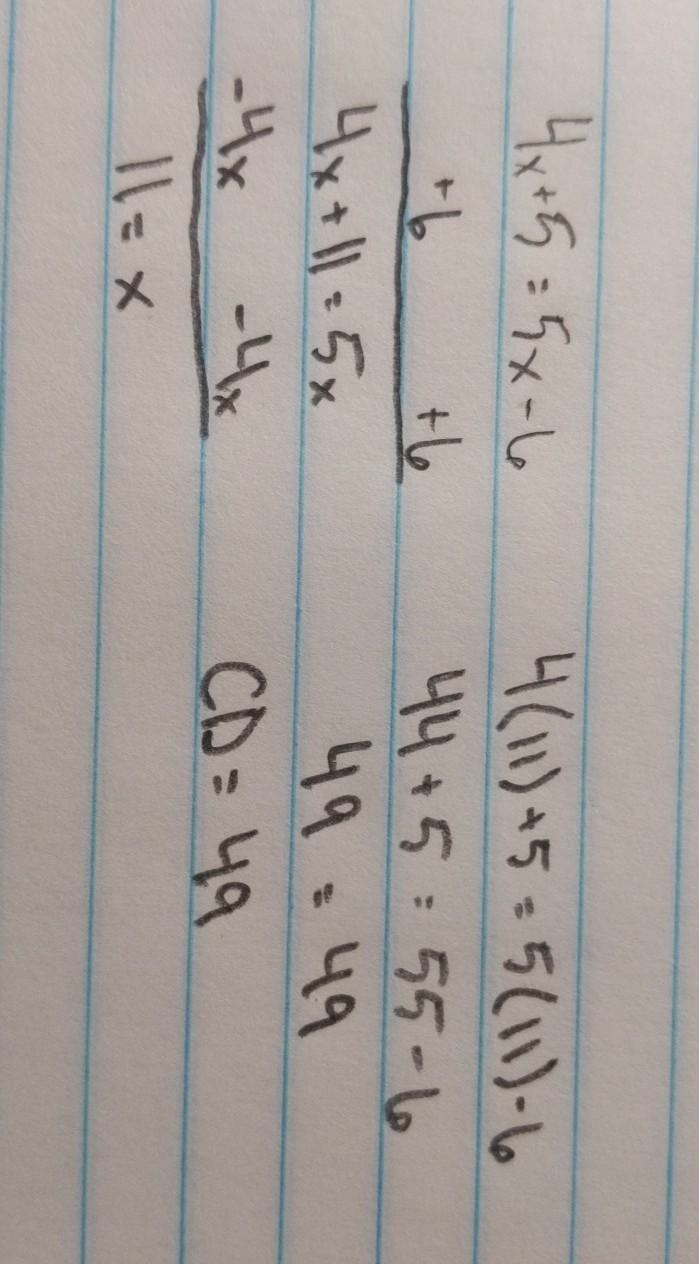 4x+5=5x-6
+6 +6
4x+11=5x
-4x -4x
11=x
4(11)+5=5(11)-6
44+5=55-6
49=49
CD=49